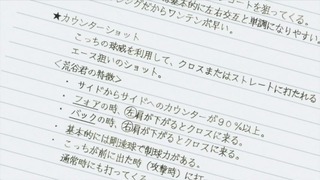 コートを狙ってくる。
基本的に左右交互と単調になりやすい。
ングだからワンテンポ早い。
★カウンターショット
こっちの球威を利用して、クロスまたはストレートに打たれる
エース狙いのショット。
<荒谷君の特徴>
・サイドからサイドへのカウンターが90%以上。
・フォアの時、左肩が下がるとクロスに来る。
・バックの時、右肩が下がるとクロスに来る。
・基本的には剛速球で制球力がある。
・こっちが前に出た時(攻撃時)に打
通常時にも打ってくる